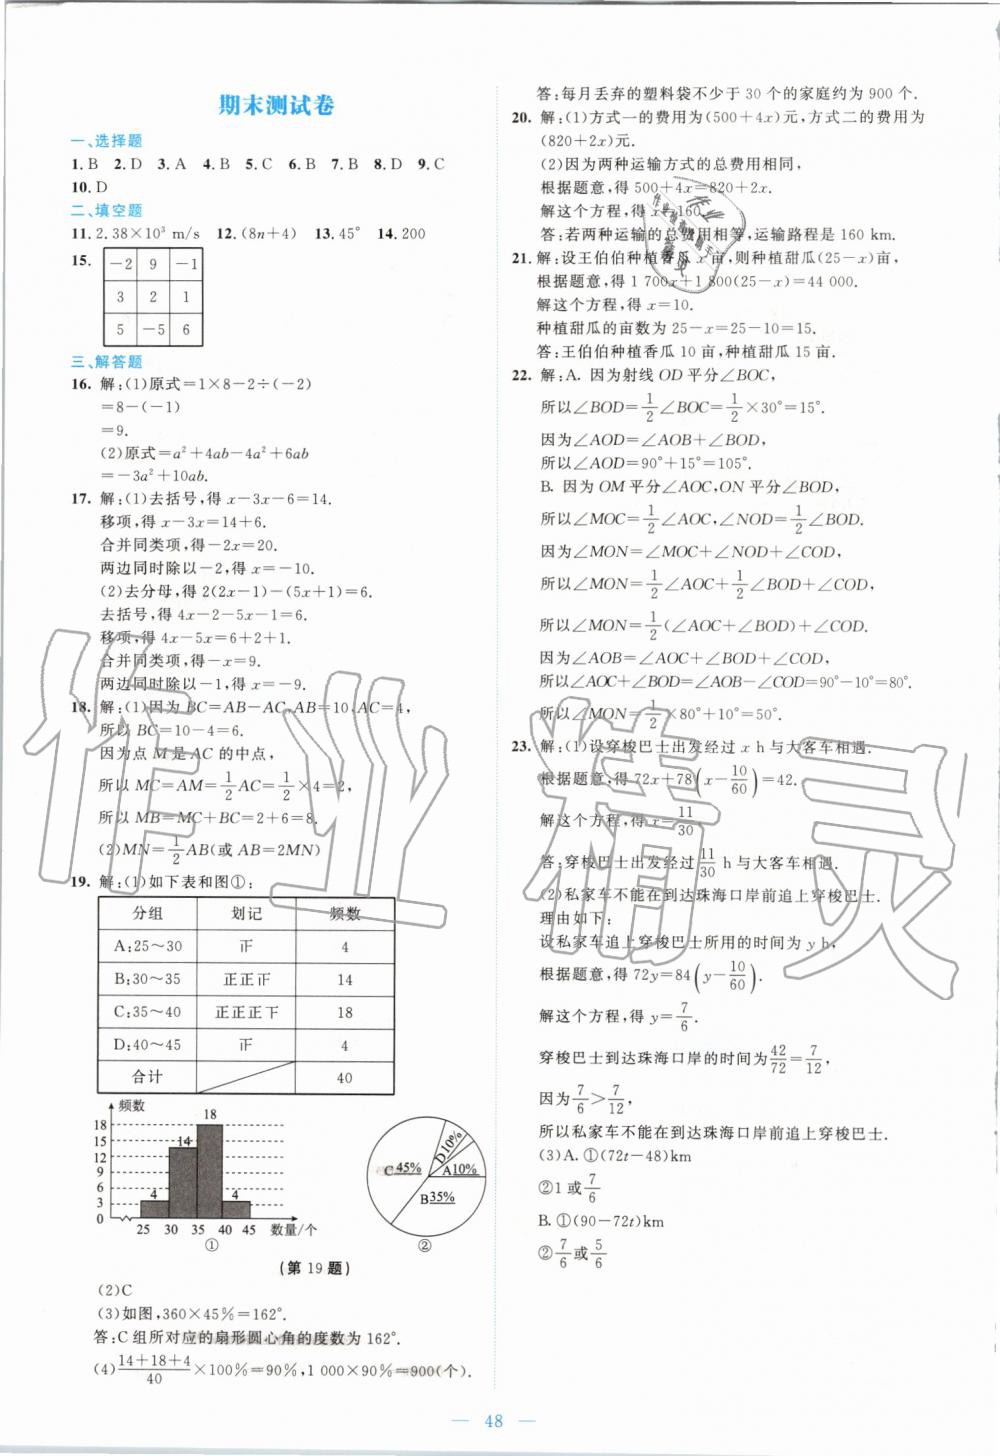 期末测试卷
一、选择题
1. B 2. D 3. A 4. B 5. C 6. B 7. B 8. D 9. C
10. D
二、填空题
11. 2.38×10³ m/s 12. (8n+4) 13. 45° 14. 200
15. −2 9 −1
3 2 1
5 −5 6
三、解答题
16. 解:(1)原式=1×8−2÷(−2)
=8−(−1)
=9.
(2)原式=a²+4ab−4a²+6ab
=−3a²+10ab.
17. 解:(1)去括号,得 x−3x−6=14.
移项,得 x−3x=14+6.
合并同类项,得−2x=20.
两边同时除以−2,得 x=−10.
(2)去分母,得 2(2x−1)−(5x+1)=6.
去括号,得 4x−2−5x−1=6.
移项,得 4x−5x=6+2+1.
合并同类项,得−x=9.
两边同时除以−1,得 x=−9.
18. 解:(1)因为 BC=AB−AC,AB=10,AC=4,
所以 BC=10−4=6.
因为点 M 是 AC 的中点,
所以 MC=AM=1/2 AC=1/2×4=2,
所以 MB=MC+BC=2+6=8.
(2)MN=1/2 AB(或 AB=2MN)
19. 解:(1)如下表和图①:
分组 划记 频数
A:25~30 4
B:30~35 正正 14
C:35~40 正正正 18
D:40~45 4
合计 40
频数
18
15
12
9
6
3
0
4 14 18 4
25 30 35 40 45 数量/个
①
D10%
C45%
A10%
B35%
②
(第 19 题)
(2)C
(3)如图,360×45%=162°.
答:C组所对应的扇形圆心角的度数为 162°.
(4)(14+18+4)/40×100%=90%,1 000×90%=900(个).
答:每月丢弃的塑料袋不少于 30 个的家庭约为 900 个.
20. 解:(1)方式一的费用为(500+4x)元,方式二的费用为
(820+2x)元.
(2)因为两种运输方式的总费用相同,
根据题意,得 500+4x=820+2x.
解这个方程,得 x=160.
答:若两种运输的总费用相等,运输路程是 160 km.
21. 解:设王伯伯种植香瓜 x 亩,则种植甜瓜(25−x)亩,
根据题意,得 1 700x+1 800(25−x)=44 000.
解这个方程,得 x=10.
种植甜瓜的亩数为 25−x=25−10=15.
答:王伯伯种植香瓜 10 亩,种植甜瓜 15 亩.
22. 解:A. 因为射线 OD 平分∠BOC,
所以∠BOD=1/2∠BOC=1/2×30°=15°.
因为∠AOD=∠AOB+∠BOD,
所以∠AOD=90°+15°=105°.
B. 因为 OM 平分∠AOC,ON 平分∠BOD,
所以∠MOC=1/2∠AOC,∠NOD=1/2∠BOD.
因为∠MON=∠MOC+∠NOD+∠COD,
所以∠MON=1/2∠AOC+1/2∠BOD+∠COD,
所以∠MON=1/2(∠AOC+∠BOD)+∠COD.
因为∠AOB=∠AOC+∠BOD+∠COD,
所以∠AOC+∠BOD=∠AOB−∠COD=90°−10°=80°.
所以∠MON=1/2×80°+10°=50°.
23. 解:(1)设穿梭巴士出发经过 x h与大客车相遇.
根据题意,得 72x+78(x−10/60)=42.
解这个方程,得 x=11/30
答:穿梭巴士出发经过11/30 h与大客车相遇.
(2)私家车不能在到达珠海口岸前追上穿梭巴士.
理由如下:
设私家车追上穿梭巴士所用的时间为 y h,
根据题意,得 72y=84(y−10/60).
解这个方程,得 y=7/6.
穿梭巴士到达珠海口岸的时间为42/72=7/12,
因为7/6>7/12,
所以私家车不能在到达珠海口岸前追上穿梭巴士.
(3)A. ①(72t−48)km
②1 或7/6
B. ①(90−72t)km
②7/6或5/6
— 48 —
作业精灵